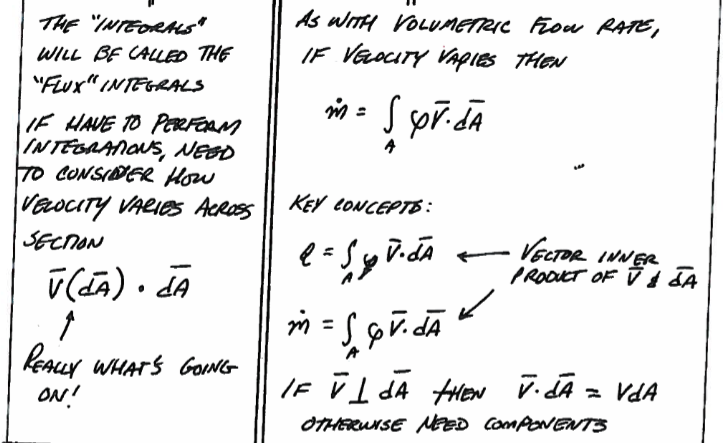 THE "INTEGRALS"
WILL BE CALLED THE
"FLUX" INTEGRALS
IF HAVE TO PERFORM
INTEGRATIONS, NEED
TO CONSIDER HOW
VELOCITY VARIES ACROSS
SECTION
V̅(dA̅) · dA̅
↑
REALLY WHAT'S GOING
ON!
AS WITH VOLUMETRIC FLOW RATE,
IF VELOCITY VARIES THEN
ṁ = ∫_A ρV̅·dA̅
KEY CONCEPTS:
Q = ∫_A V̅·dA̅ ← VECTOR INNER
PRODUCT OF V̅ & dA̅
ṁ = ∫_A ρV̅·dA̅
IF V̅ ⊥ dA̅ THEN V̅·dA̅ = VdA
OTHERWISE NEED COMPONENTS